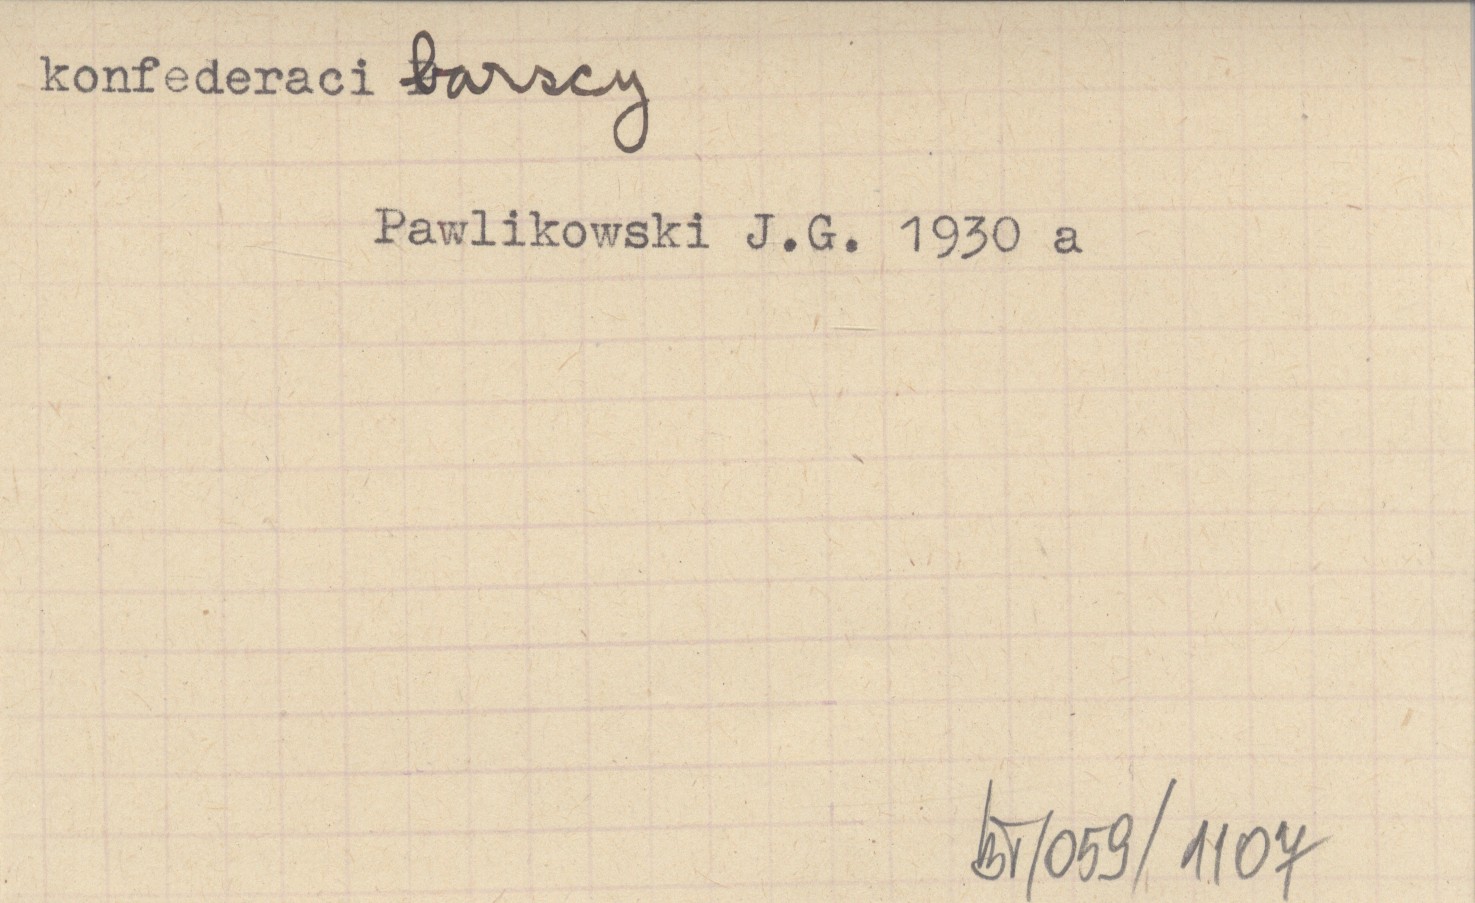 konfederaci barscy
Pawlikowski J.G. 1930 a
/059/1107